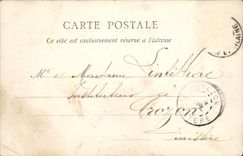 CARTE POSTALE
Ce côté est exclusivement réservé à l'adresse
M. et Madame
Instituteur à
Crozon
Finistère